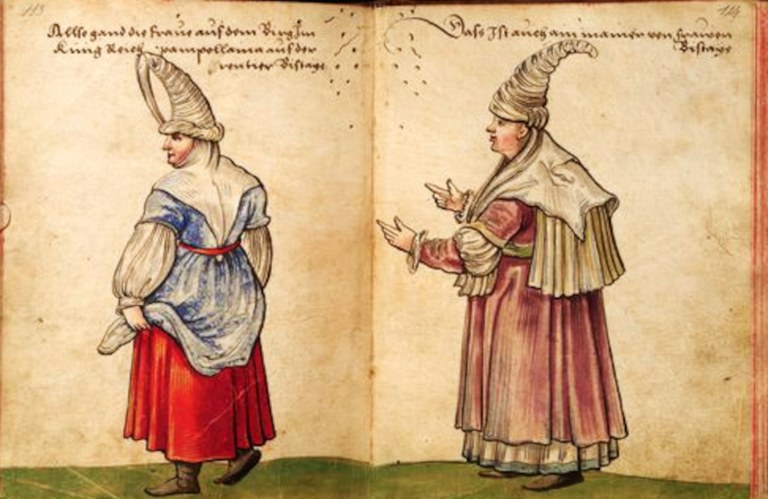 113
Allso gand die fraue auf dem Birg Im
Küng Reich pampellama auf der
rentier Bistage
114
Dass Ist auch ain manier von frawen
Bistaye